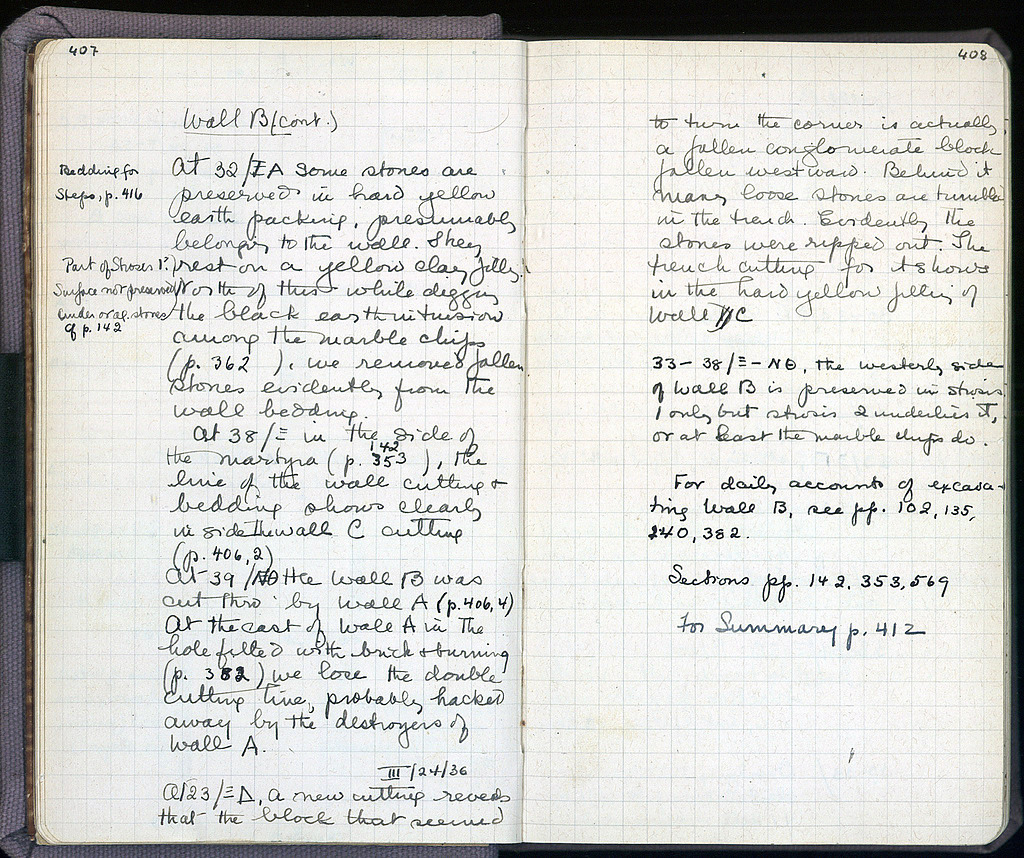 407
Wall B (cont.)
Bedding for
Steps, p. 416
At 32/ΞA some stones are
preserved in hard yellow
earth packing, presumably
belonging to the wall. They
Part of Stroses 1?
Surface not preserved
under orig. stones
cf p. 142
rest on a yellow clay filling.
North of this while digging
the black earth intrusion
among the marble chips
(p. 362 ), we removed fallen
stones evidently from the
wall bedding.
At 38/Ξ in the side of
the martyra (p. 142 353 ), the
line of the wall cutting &
bedding shows clearly
inside the wall C cutting
(p. 406, 2)
At 39/ΝΘ the Wall B was
cut thro' by Wall A (p. 406, 4)
At the east of Wall A in the
hole filled with brick & burning
(p. 382 ) we lose the double
cutting line, probably hacked
away by the destroyers of
Wall A.
III/24/36
At 23/ΞΔ, a new cutting reveals
that the block that seemed
408
to turn the corner is actually
a fallen conglomerate block
fallen westward. Behind it
many loose stones are tumbled
in the trench. Evidently the
stones were ripped out. The
trench cutting for it shows
in the hard yellow filling of
Wall C
33-38/Ξ-ΝΘ, the westerly side
of Wall B is preserved in strosis
1 only but strosis 2 underlies it,
or at least the marble chips do.
For daily accounts of excava-
ting Wall B, see pp. 102, 135,
240, 382.
Sections pp. 142, 353, 569
For Summary p. 412